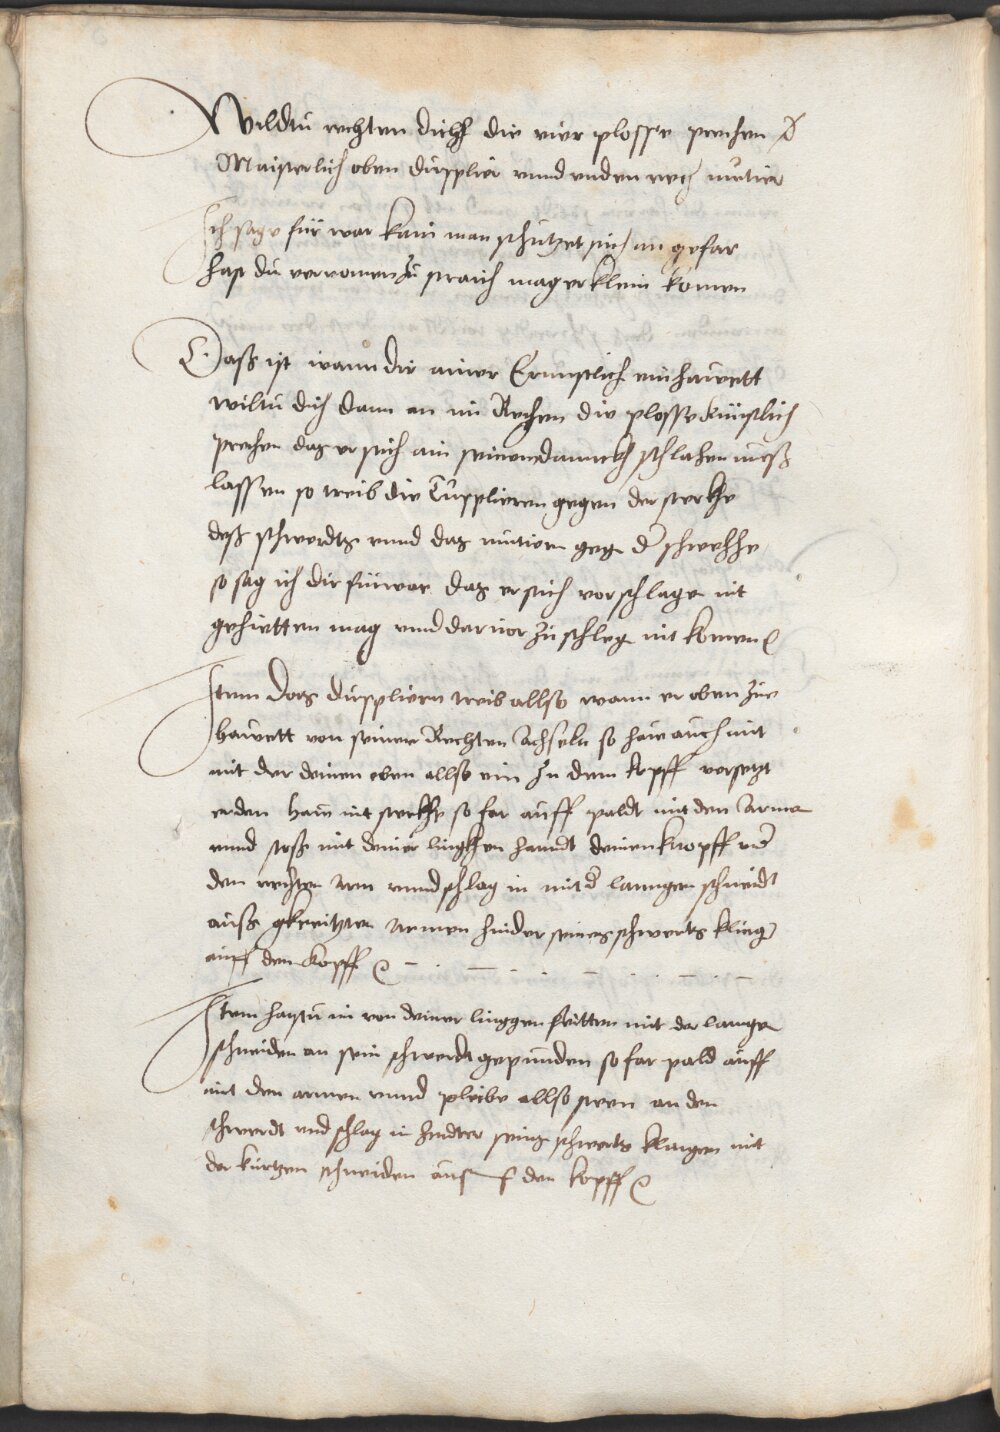 Wildtu rechten dich die vier plosse prechen
Maisterlich oben dupplier vnnd vnden rech mutier
Ich sage für war kain man schützet sich an gefar
hast du vernomen zu straich mag er klein komen
Daß ist wann dir ainer Ernnstlich ein hawett
wiltu dich dann an im Rechen die plosse künstlich
prechen das er sich ain seinem danckh schlahen mueß
lassen so treib die Tupplieren gegen der sterckhe
deß schwerdts vnnd das mutiern geg der schwechhe
so sag ich dir fürwar das er sich vor schlage nit
gehietten mag vnnd dar vor zu schleg nit komen
Item Das duppliern treib allso wann er oben zue
hawett von seiner Rechten Achseln so haw auch mit
mit der deinen oben allso ein zu dem kopff versetzt
er den haw mit sterckhe so far auff paldt mit den Arme
vnnd stoß mit deiner lingkhen hanndt deinen knopff vnder
den rechten arm vnnd schlag in mit der lanngen schneidt
auß gkreitzten armen hinder seines schwerts kling
auff den kopff
Item hastu im von deiner linggen seitten mit der lange
schneiden an sein schwerdt gepunden so far pald auff
mit den armen vnnd pleibe allso sten an den
schwerdt vnd schlag in hindter seins schwerts klingen mit
der kurtzen schneiden auf den kopff